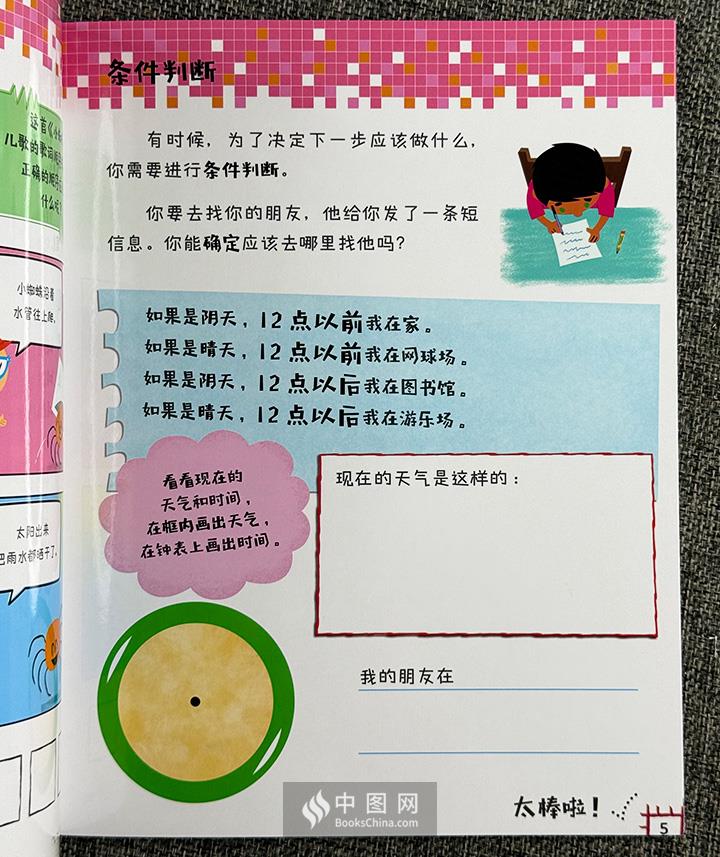 这首《小
儿歌的歌词
正确的顺序
什么呢
小蜘蛛沿着
水管往上爬。
太阳出来
把雨水都晒干了。
条件判断
有时候，为了决定下一步应该做什么，
你需要进行条件判断。
你要去找你的朋友，他给你发了一条短
信息。你能确定应该去哪里找他吗？
如果是阴天，12点以前我在家。
如果是晴天，12点以前我在网球场。
如果是阴天，12点以后我在图书馆。
如果是晴天，12点以后我在游乐场。
看看现在的
天气和时间，
在框内画出天气，
在钟表上画出时间。
现在的天气是这样的：
我的朋友在
太棒啦！
5
中图网
BooksChina.com